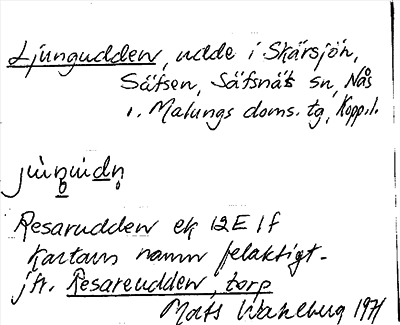 Ljungudden, udde i Skärsjön,
Säfsen, Säfsnäs sn, Nås
o. Malungs doms. tg, Kopp.l.
Resarudden ek 12E 1f
Kartans namn felaktigt.
jfr. Resareudden, torp
Mats Wahlberg 1971